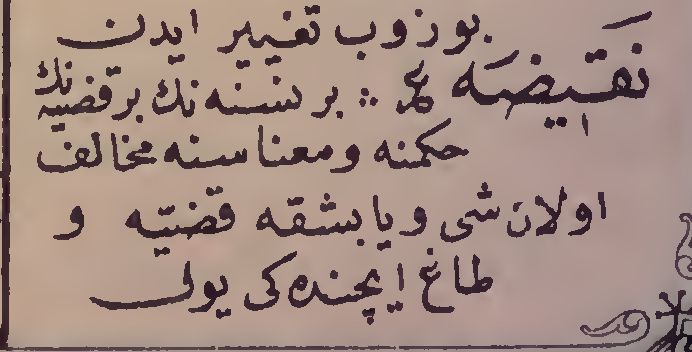 بوزوب تغییر ایدن
نَقَیضَه عم ؞ بر نسنه نك بر قضیه نك
حكمنه و معناسنه مخالف
اولان شی و یا بشقه قضیّه و
طاغ ایچنده كی یولی